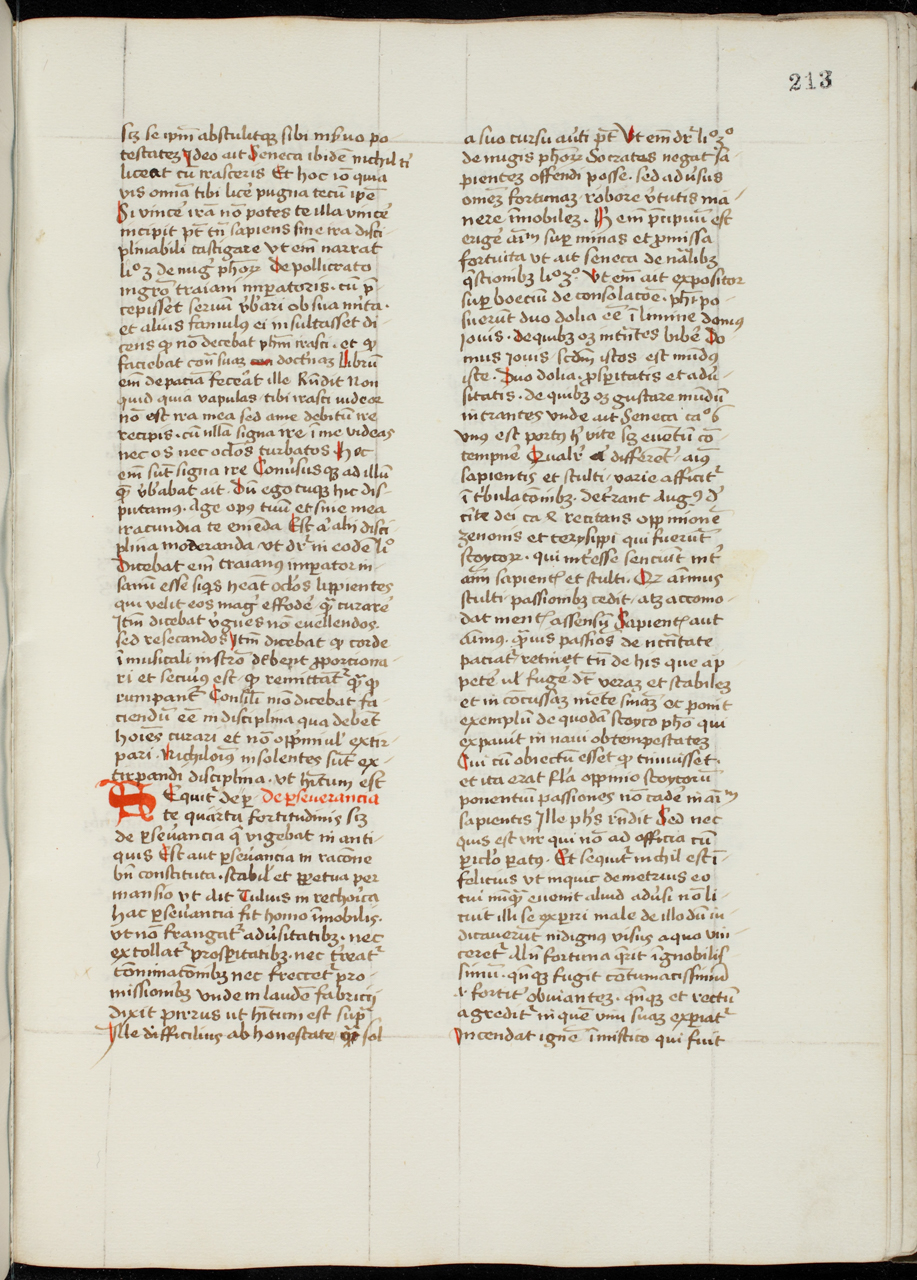 213
sꝫ se ip̄m abstulitqꝫ sibi in bͬuo po
testateꝫ Ideo ait Seneca ibidē nichil tͥ
liceat cū irasceris Et hoc iō quia
vis omīa tibi licēͬ pugna tecū ip̄e
Si vinceͬ irā nō potes te illa vinceͬ
incipit p̄t tn̄ sapiens sine ira disci
plinabili castigare vt em̄ narrat
liº 3 de nugͭ ph̄oꝝ De pollicrato
ingrō traiani imꝑatoris · cū p̄
cepisset seruū v̓b̓ari ob sua mͬita ·
et alius famulus ei insultasset di
cens ꝙ nō decebat ph̄m irasci · et ꝙ
faciebat con̄ suaꝫ doctͥnaꝫ librū
em̄ de patīa fecerat ille Rn̄dit Non
quid quia vapulas · tibi irasci videor
nō est ira mea sed a me debitū ire
recipis · cū nulla signa ire ī me videas
nec os nec oclōs turbatos Hec
em̄ sūt signa ire Conuersusqꝫ ad illū
q̄ v̓b̓abat ait · Dū ego tuqꝫ hic dis-
putamꝰ · Age opꝰ tuū et sine mea
iracundia te emēda Est aͥ · alij disci
plina moderanda · vt dr̄ in eodē liº
Dicebat em̄ traianus imꝑator in-
sanū esse siqͥs heāt oclōs lippientes
qui velit eos magͭ effodeͬ q̄ curareͬ
Itm̄ dicebat vngues nō euellendos ·
sed resecandos Itm̄ dicebat ꝙ corde
ī musicali instrō dēbent ꝓporciona
ri et secius est · ꝙ remittatͬ q̄ ꝙ
rumpantͬ Consili mō dicebat fa
ciendū eē in disciplina qua debēt
hoīes curari et nō opp̄mi ul̓ extir-
pari · Nichilomīꝰ insolentes sūt ex-
tirpandi disciplina · vt hītum est
SEquitͬ de p̄ · de ꝑseuerancia
te quarta fortitudinis sꝫ
de ꝑseu̓ancia q̄ vigebat in anti-
quis Est aut̄ ꝑseu̓ancia in racōne
bn̄ constituta · stabil̓ et ꝑpetua per
mansio vt ait Tulius in rethoͥca
hac ꝑseu̓ancia fit homo īmobilis ·
vt nō frangatͬ adu̓sitatibꝫ · nec
extollatͬ prosꝑitatibꝫ · nec treatͬ
cōminatōnibꝫ nec flectetͬ pro-
missionibꝫ vnde in laudem fabricij
dixit pirrus ut hītum est supͣ
Ille difficilius ab honestate qͣ sol
a suo cursu au̓ti p̄t Vt em̄ dr̄ liº 3º
de nugis ph̄oꝝ Socrates negat sa-
pienteꝫ offendi posse · sed adu̓sus
omneꝫ fortunaꝫ · robore v̓tutis ma-
nere īmobileꝫ · Hͦ em̄ p̄cipuū est
erigeͬ aīm sup minas et ꝓmissa
fortuita vt ait seneca de nal̓ibꝫ
q̄stionibꝫ liº 3º · Vt em̄ ait expositor
suꝑ boeciū de consolacōe · ph̄i po-
suerūt duo dolia eē ī limine domus
jouis · de quibꝫ oꝫ intͬntes bibeͬ Do
mus jouis scdm̄ istos est mūdꝰ
iste · Duo dolia · prosꝑitatis et adu̓-
sitatis · de quibꝫ oꝫ gustare mūdū
intrantes unde ait Seneca caº 6
vnꝰ est portꝰ hͥ vite sꝫ euētū cō-
tempneͬ Qualr̓ differentͬ · aīꝰ
sapientis et stulti · varie afficitͬ
ī tͥbulatōnibꝫ · detͬrant Augꝰ 9 dͤ
ciͥte dei ca 4 recitans oppinionē
zenonis et cerysippi qui fuerūt
stoycoꝝ · qui intͬesse senciūt intͬ
aīm sapientͭ et stulti · Qꝫ animus
stulti passionibꝫ cedit · atqꝫ accomo-
dat mentͭ assensū Sapientͭ aut̄
aīmus · q̄uis passiōs de nc̄citate
paciatͬ retinet tn̄ de his que ap
peteͬ ul̓ fugeͬ dꝫ veraꝫ et stabileꝫ
et inconcussaꝫ mēte sniaꝫ et ponit
exemplū de quodā stoyco ph̄o qui
expauit in naui ob tempestateꝫ
Cui cū obiectū esset ꝙ timuisset ·
et ita erat fl̄a oppinio stoycorū
ponentiū passiones nō cadeͬ in aīm
sapientis Ille ph̄s rn̄dit Sed nec
quis est vir qui nō ad officia cū
ꝑiclo patꝰ · Et sequitͬ nichil est ī-
felicius vt inquic demetrius eo
cui nūq̄ euenit aliud adu̓si nō li-
cuit illi se exꝑiri male de illo dii iu-
dicauerūt indignꝰ visus a quo vin
ceretͬ Aln̄ fortuna qͬit ignobilis
simū · qn̄qꝫ fugit cōtumacissimū
& fortitͬ obuianteꝫ · qn̄qꝫ et rectū
agreditͬ in quē vim suaꝫ exꝑiatͬ
Incendat ignē ī mistico qui fuit